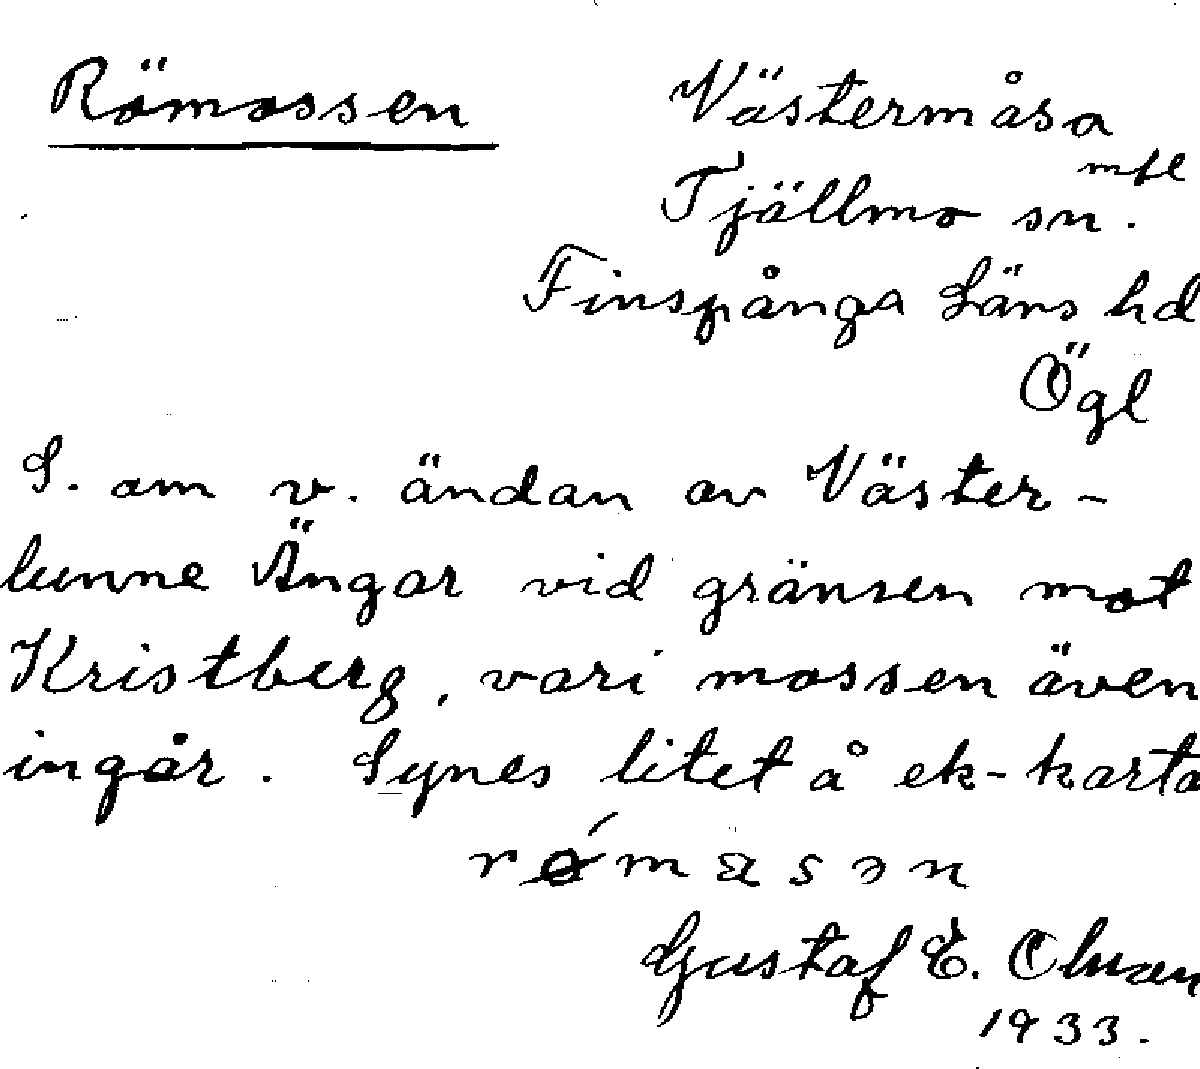 Römossen
Västermåsa
mfl
Tjällmo sn.
Finspånga Läns hd
Ögl
S. om v. ändan av Väster-
lunne Ängar vid gränsen mot
Kristberg, vari mossen även
ingår. Synes litet å ek-karta
Gustaf E.
1933.